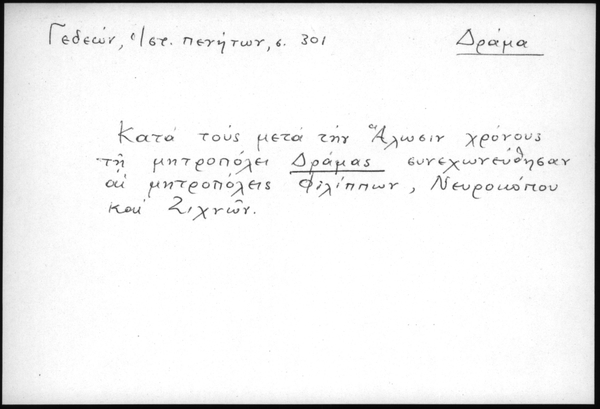 Γεδεών, Ἱστ. πενήτων, σ. 301
Δράμα
Κατά τούς μετά τήν Ἅλωσιν χρόνους
τῇ μητροπόλει Δράμας συνεχωνεύθησαν
αἱ μητροπόλεις Φιλίππων, Νευροκόπου
καί Ζιχνῶν.